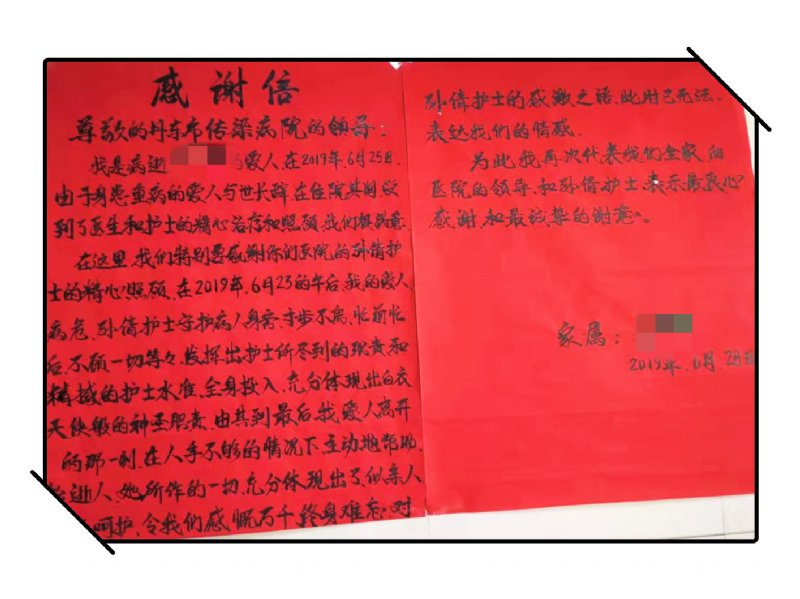 感谢信
尊敬的丹东市传染病院的领导：
我是病逝 爱人 在2019年.6月25日.
由于身患重病的爱人与世长辞在住院其间受
到了医生和护士的精心治疗和照顾 我们极满意
在这里.我们特别要感谢你们医院的孙倩护
士的精心照顾.在2019年.6月23的午后.我的爱人
病危.孙倩护士守护病人身旁.寸步不离.忙前忙
后不顾一切等等.发挥出护士所尽到的职责和
精诚的护士水准.全身投入.充分体现出白衣
天使般的神圣职责.由其到最后.我爱人离开
的那一刻.在人手不够的情况下主动地帮助.
逝人.她所作的一切.充分体现出了似亲人
呵护.令我们感慨万千.终身难忘.对
孙倩护士的感激之语.此时已无法.
表达我们的情感.
为此我再次代表我们全家向
医院的领导.和孙倩护士表示最衷心
感谢.和最诚挚的谢意。
家属：
2019年.6月.28日